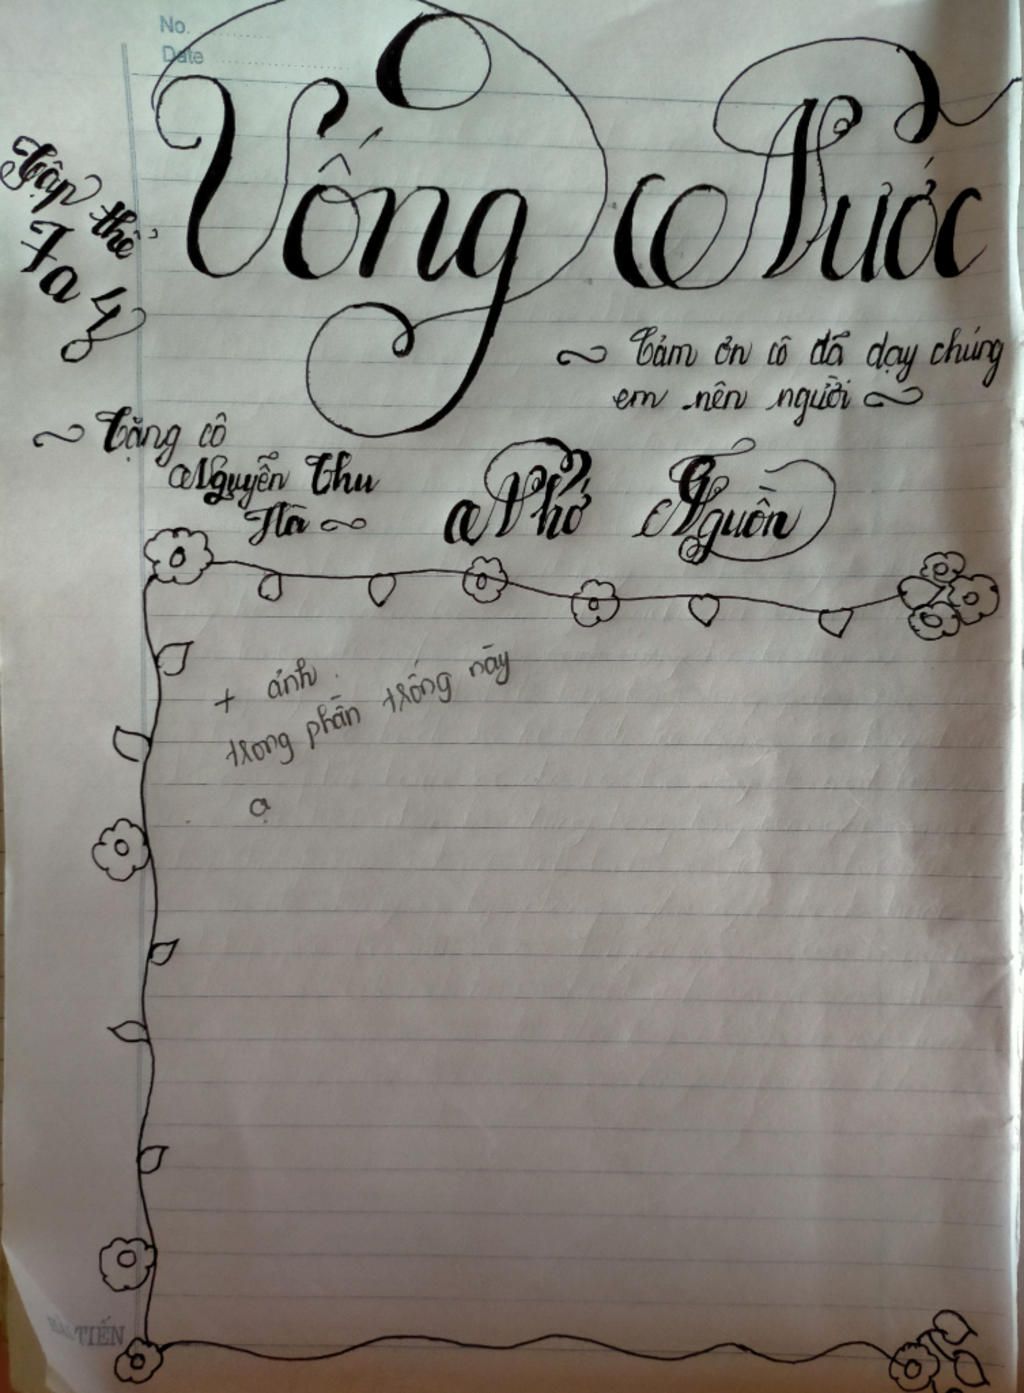 No.
Date
Uống Nước
Tập thể
7a4
~ Cảm ơn cô đã dạy chúng
em nên người ~
~ Tặng cô
Nguyễn Thu
Hà ~
Nhớ Nguồn
+ ảnh
trong phần trống này
ạ
HẢI TIẾN